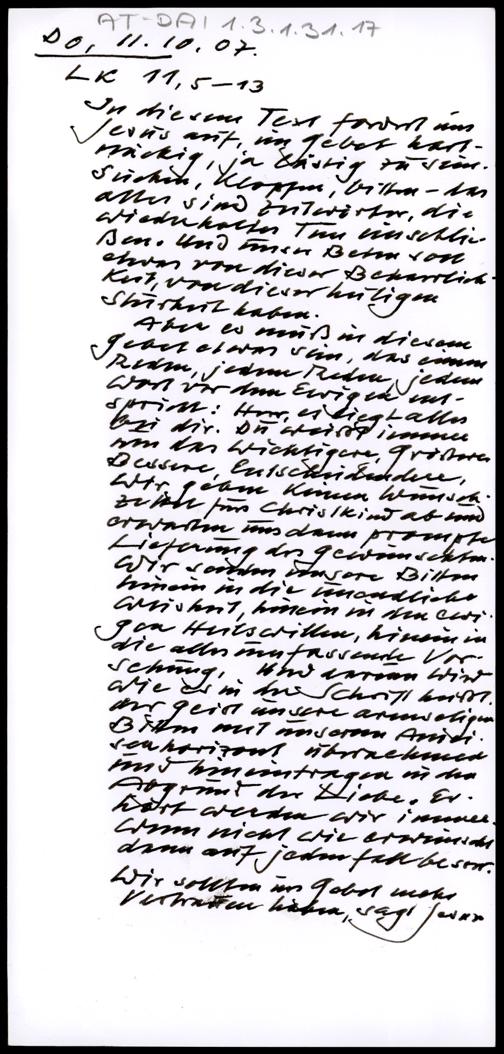 AT-DAI 1.3.1.31.17
DO, 11.10.07.
LK 11,5-13
In diesem Text fordert uns
Jesus auf, im Gebet hart-
näckig, ja lästig zu sein.
Suchen, Klopfen, bitten - das
alles sind Zeitwörter, die
wiederholtes Tun einschlie-
ßen. Und unser Beten soll
etwas von dieser Beharrlich-
keit, von dieser heiligen
Sturheit haben.
Aber es muß in diesem
Gebet etwas sein, das einem
Reden, jedem Reden, jedem
Wort vor dem Ewigen ent-
spricht: Herr, es liegt alles
bei dir. Du weißt immer
um das Wichtigere, Größere
Bessere, Entscheidendere,
Wir geben keinen Wunsch-
zettel fürs Christkind ab und
erwarten uns dann prompte
Lieferung des gewünschten.
Wir senden unsere Bitten
hinein in die unendliche
Weisheit, hinein in den ewi-
gen Heilswillen, hinein in
die alles umfassende Vor-
sehung. Und darum wird
wie es in der Schrift heißt.
der Geist unsere armseligen
Bitten mit unserem Amei-
senhorizont übernehmen
und hineintragen in den
Abgrund der Liebe. Er-
hört werden wir immer.
Wenn nicht wie erwünscht
dann auf jeden Fall besser.
Wir sollten im Gebet mehr
Vertrauen haben, sagt Jesus